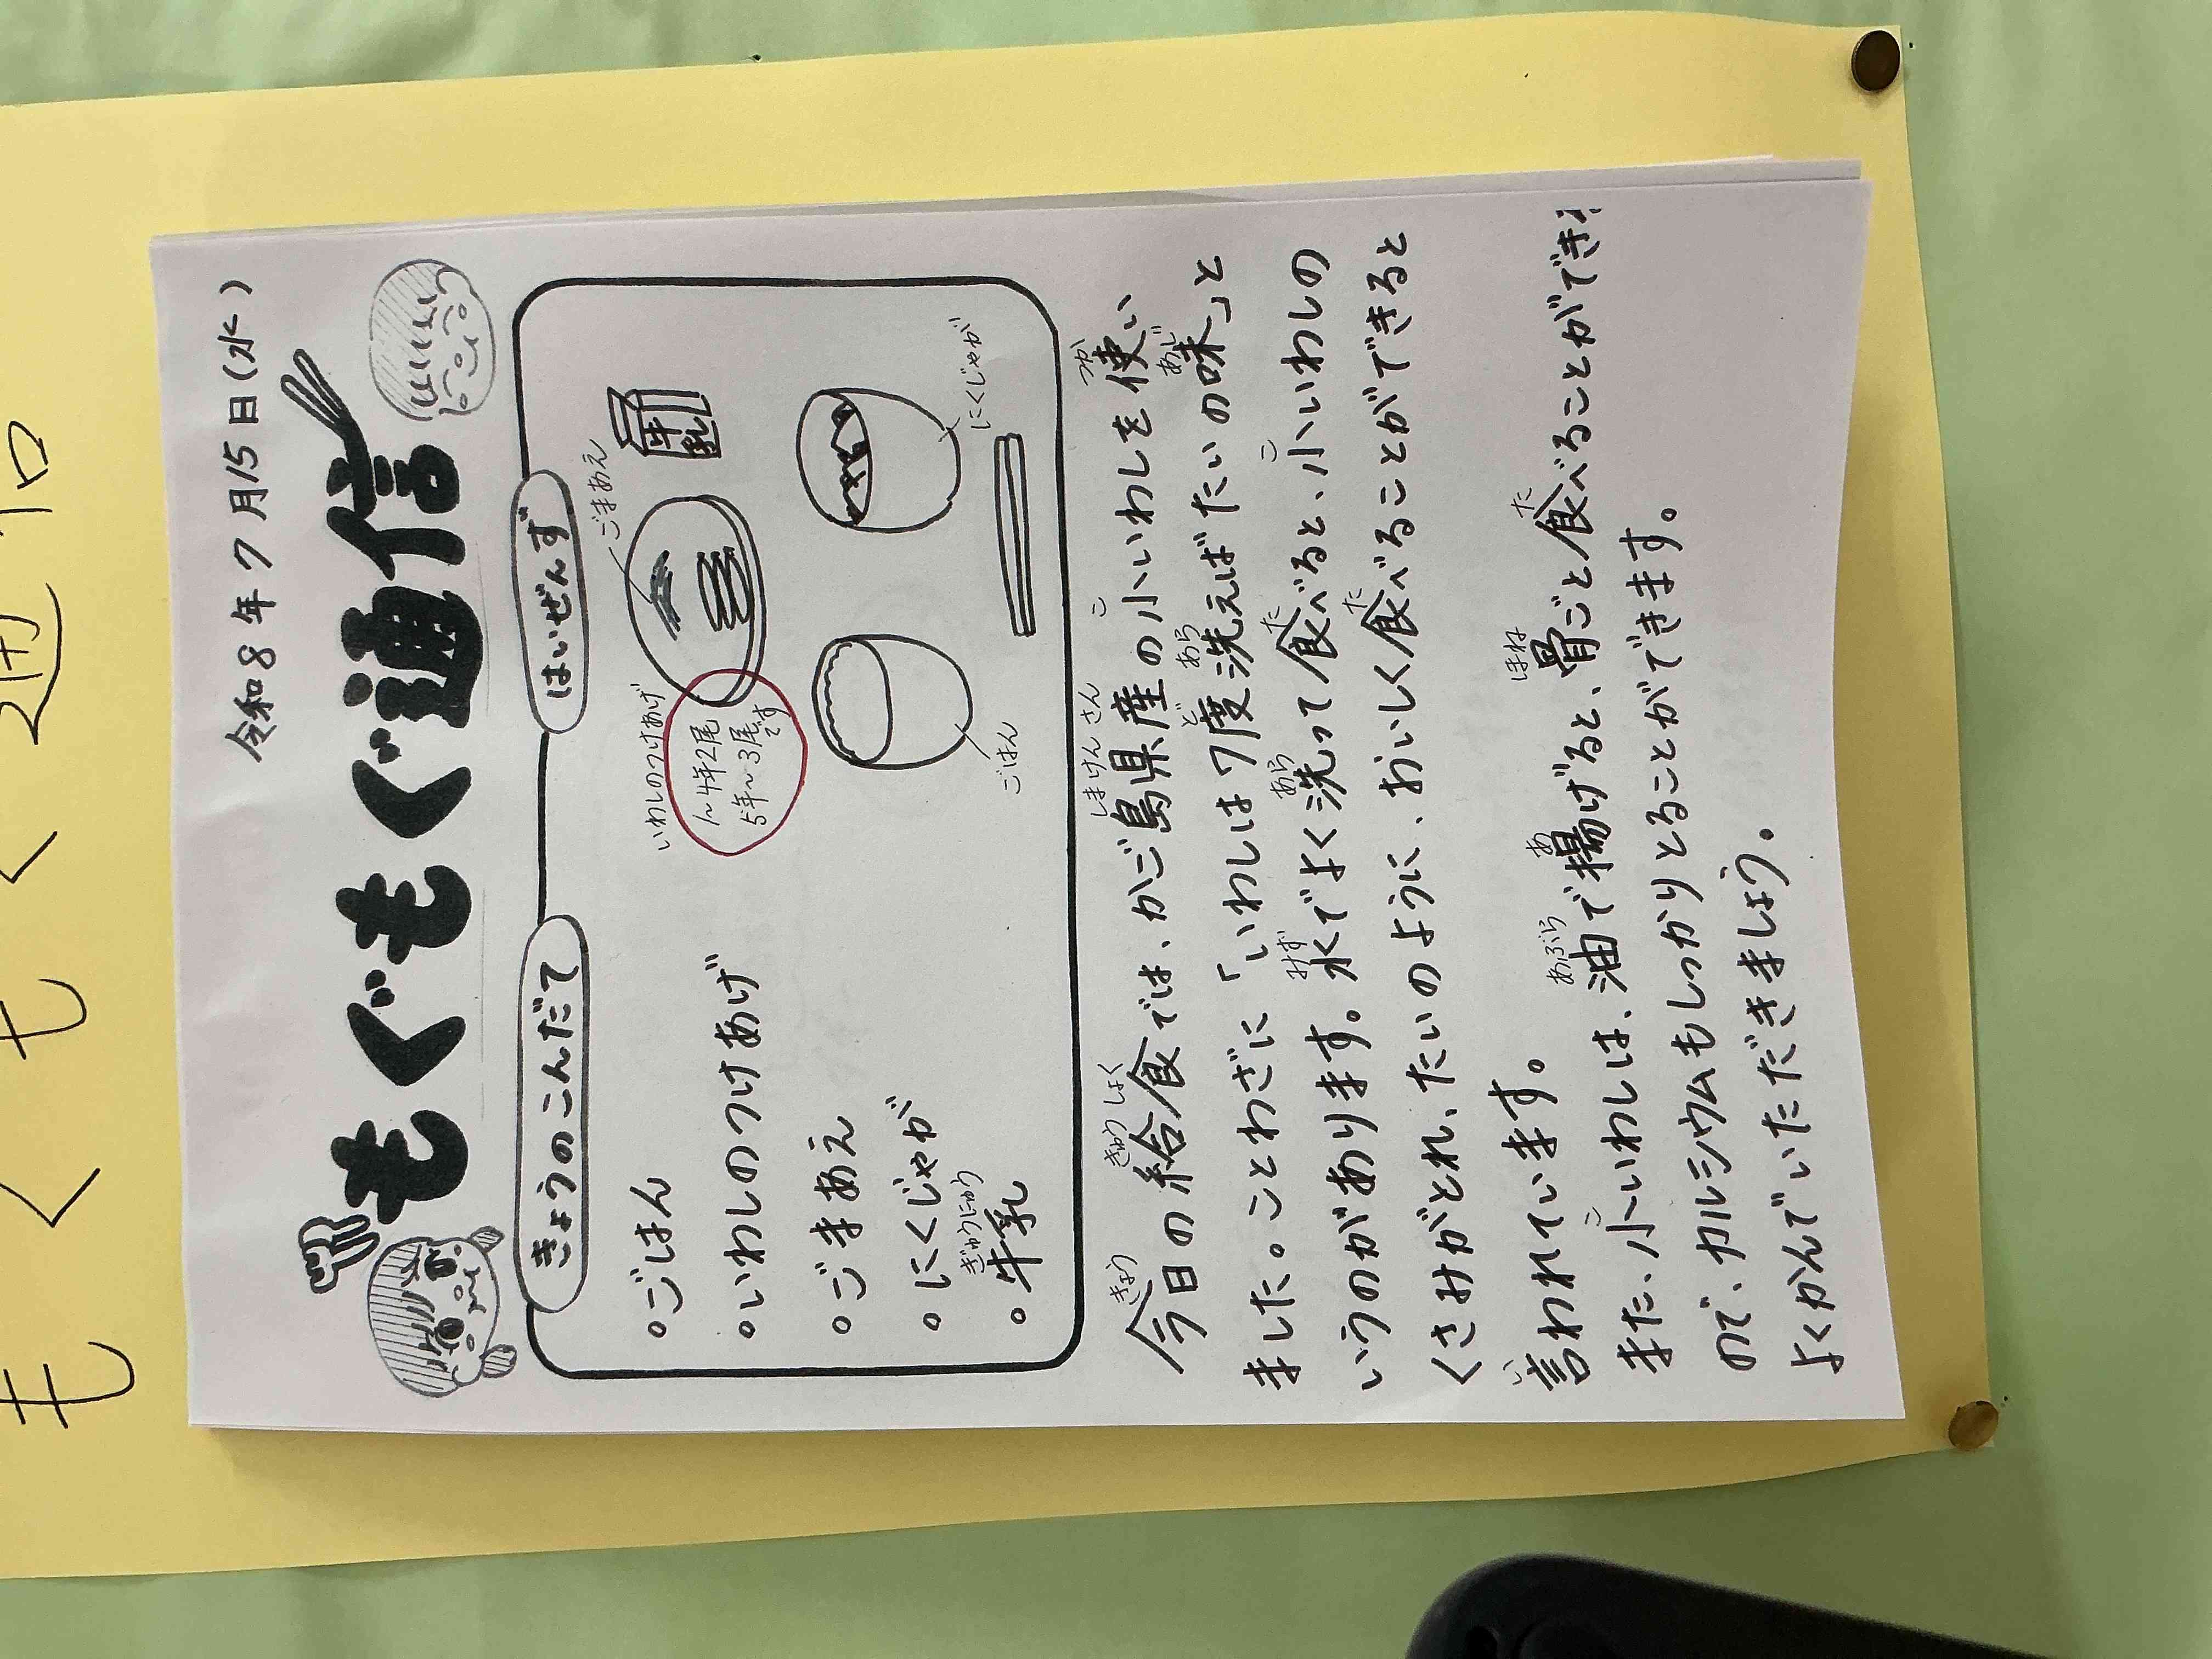 もぐもぐ通信
令和8年7月15日(水)
もぐもぐ通信
きょうのこんだて
はいぜんず
。ごはん
。いわしのつけあげ
。ごまあえ
。にくじゃが
ぎゅうにゅう
。牛乳
いわしのつけあげ
1〜4年2尾
5年〜3尾です
ごまあえ
牛乳
ごはん
にくじゃが
きょう きゅうしょく しまけんさん こ つか
今日の給食では、かご島県産の小いわしを使い
ど あら あじ
ました。ことわざに「いわしは7度洗えばたいの味」と
みず あら た こ
いうのがあります。水でよく洗って食べると、小いわしの
た
くさみがとれ、たいのように、おいしく食べることができると
い
言われています。
こ あぶら あ ほね た
また、小いわしは、油で揚げると、骨ごと食べることができ
ので、カルシウムもしっかりとることができます。
よくかんでいただきましょう。